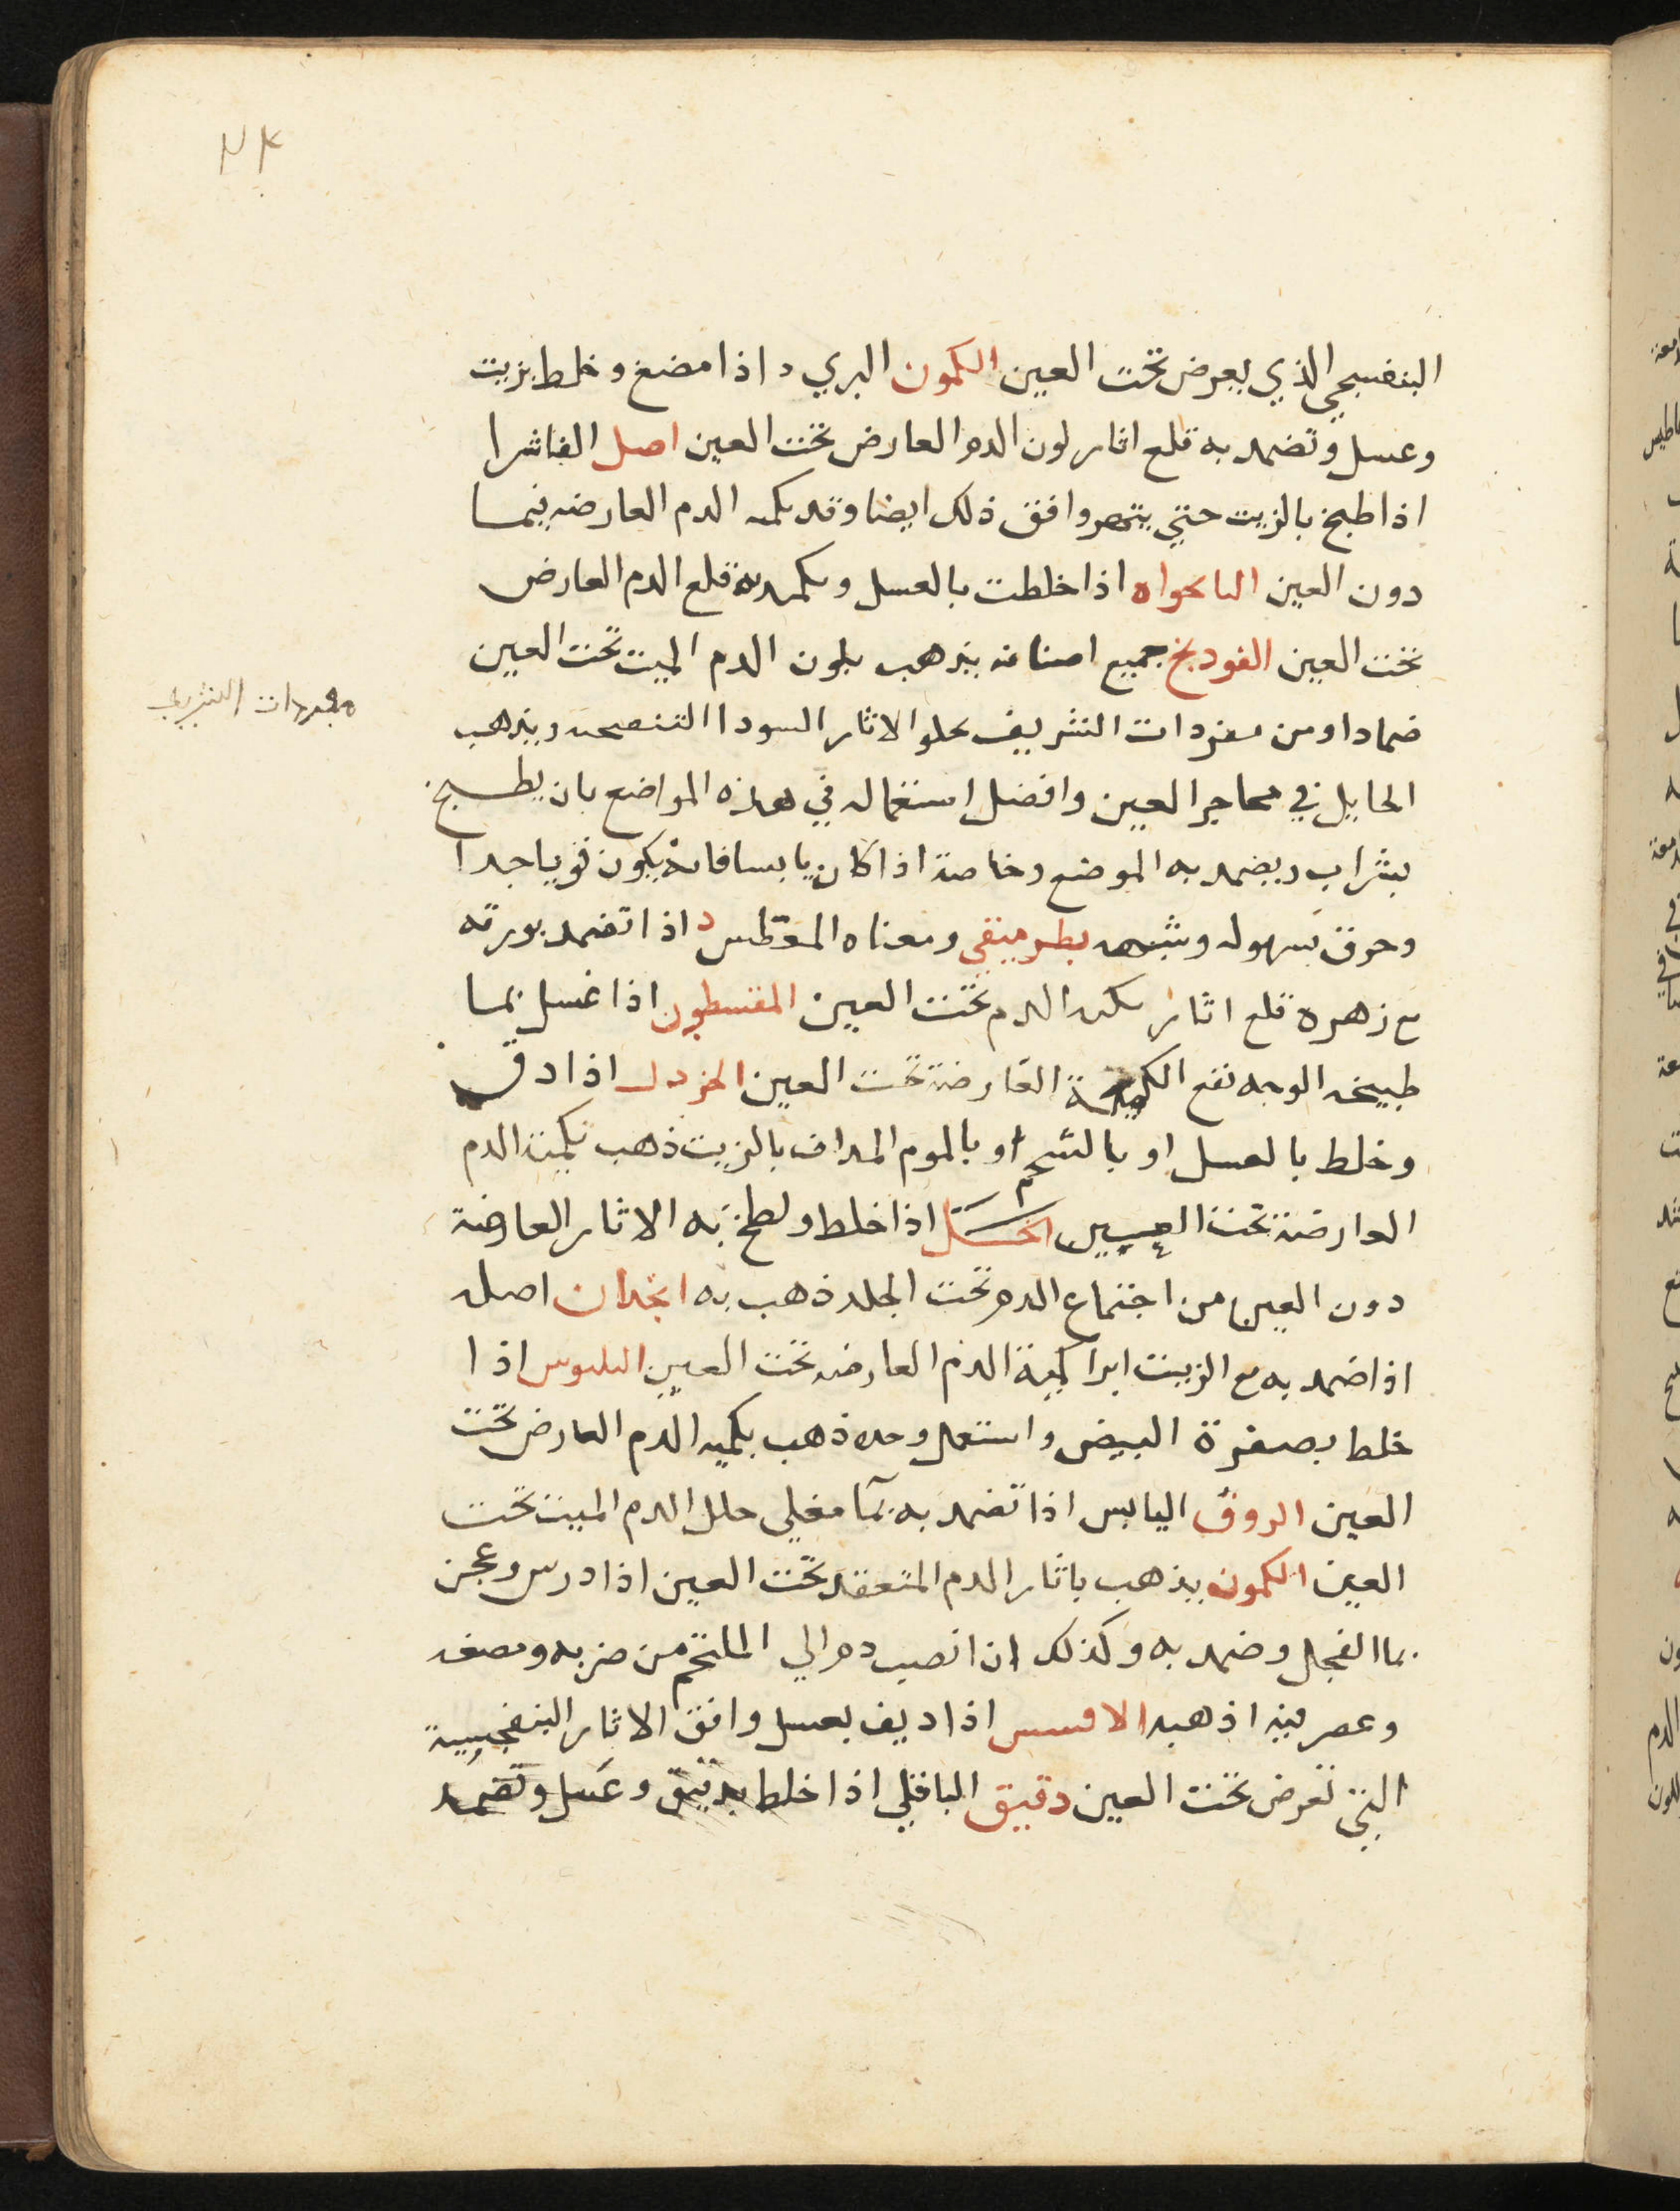 البنفسجي الذي يعرض تحت العين الكمون البري د اذا مضغ وخلط بزيت
وعسل وتضمد به قلع اثار لون الدم العارض تحت العين اصل الفاشرا
اذا طبخ بالزيت حتي يتهرا وافق ذلك ايضا وقد يكمد الدم العارضه فيما
دون العين النانخواه اذا خلطت بالعسل وتكمد به قلع الدم العارض
تحت العين الفودنج جميع اصنافه يذهب بلون الدم الميت تحت العين
ضمادا ومن مفردات الشريف يجلو الاثار السودا ويذهب
مفردات الشريف
الحايل في محاجر العين وافضل استعماله في هذه المواضع بان يطبخ
بشراب ويضمد به الموضع وخاصة اذا كان يابسا فانه يكون قويا جدا
وحرق بسهوله ومعناه المعطس د اذا تضمد بورقه
مع زهره قلع اثار الدم تحت العين اذا غسل بما
طبيخه الوجه نفع العارضة تحت العين الخردل اذا دق
وخلط بالعسل او بالشحم او بالموم المداف بالزيت ذهب بكمنة الدم
العارضة تحت العين اذا خلط ولطخ به الاثار العارضة
دون العين من اجتماع الدم تحت الجلد ذهب به انجدان اصله
اذا ضمد به مع الزيت ابرا كمنة الدم العارضه تحت العين البلبوس اذا
خلط بصفرة البيض واستعمل وحده ذهب بكمنه الدم العارض تحت
العين الزوفا اليابس اذا تضمد به بما مغلي حلل الدم الميت تحت
العين الكمون يذهب باثار الدم المنعقد تحت العين اذا درس وعجن
بما الفجل وضمد به وكذلك ان انصب دم الي الملتحم من ضربه ومضغ
وعصر فيه اذهبه اذا ديف بعسل وافق الاثار البنفسجية
التي تعرض تحت العين دقيق الباقلي اذا خلط وعسل وتضمد